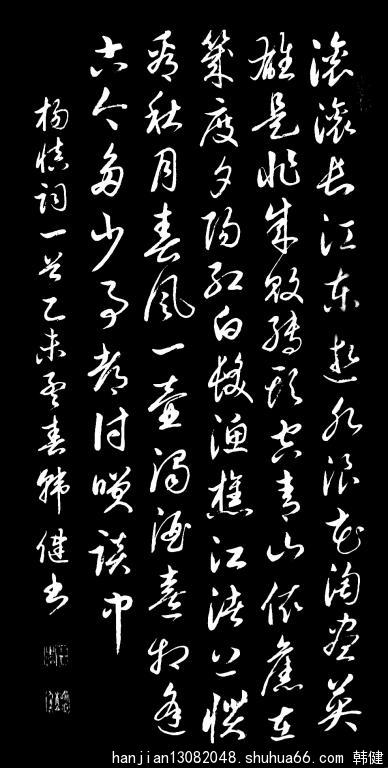 滚滚长江東逝水浪花淘盡英
雄是非成敗轉頭空青山依舊在
幾度夕陽紅白髮漁樵江渚上慣
看秋月春風一壺濁酒喜相逢
古今多少事都付笑談中
楊慎詞一首乙未孟春韓健书
hanjian13082048.shuhua66.com 韩健